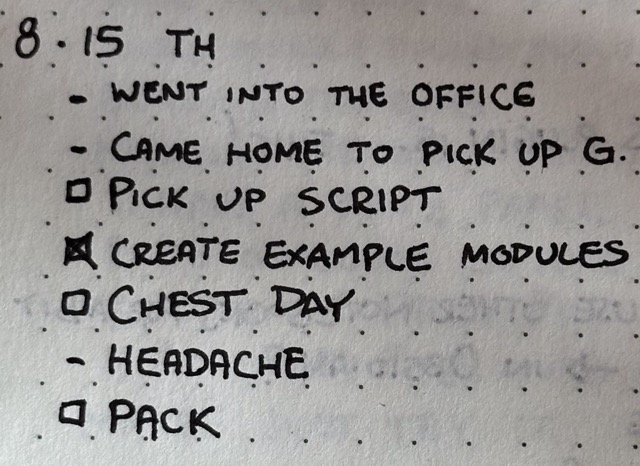 8.15 TH
- WENT INTO THE OFFICE
- CAME HOME TO PICK UP G.
☐ PICK UP SCRIPT
☒ CREATE EXAMPLE MODULES
☐ CHEST DAY
- HEADACHE
☐ PACK